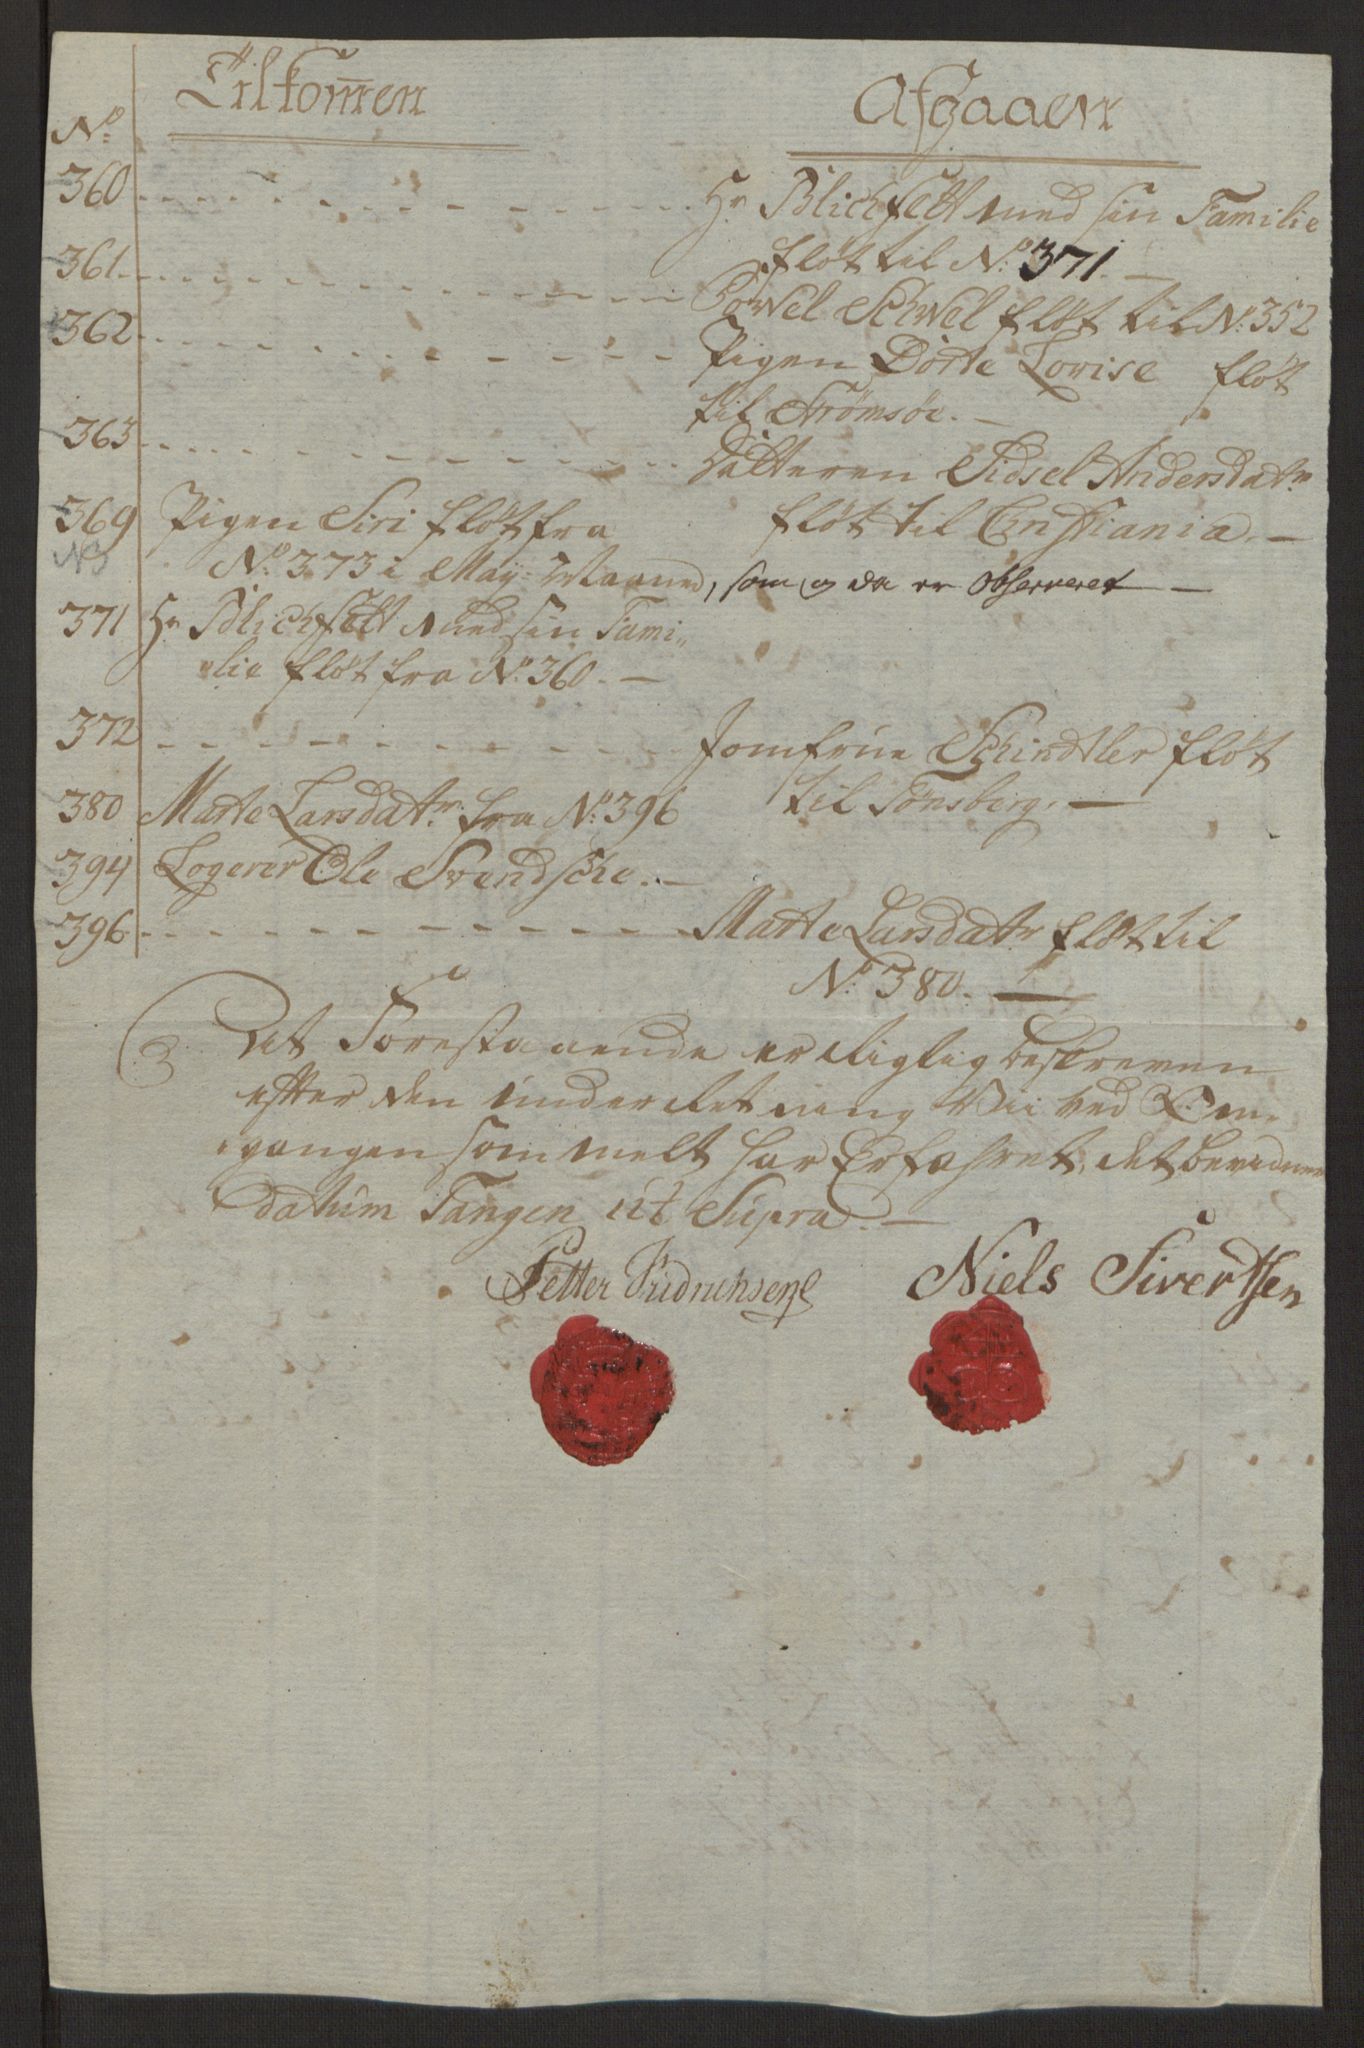 Tilkom̅en Afgaaen
No
360 Hr Blichfelt med sin Familie
fløt til No: 371. —
361 Powel Schvel fløt til No: 352
362 Pigen Dorte Lovise fløt
til Strømsöe. —
363 Datteren Sidsel Andersdatr
fløt til Christiania. —
369 Pigen Siri fløt fra
NB No: 373 i May Maaned, som og da er observeret —
371 Hr Blichfelt med sin Fami„
„lie fløt fra No: 360. —
372 Jomfrue Schindtler fløt
til Tönsberg. —
380 Marte Larsdatr fra No: 396
394 Logerer Ole Svendsche. —
396 Marte Larsdatr fløt til
No: 380. —
Det Forestaaende er Rigtig beskreven
efter den underretning Vii ved Om„
„gangen som melt har Erfahret, det bevidner
datum Tangen ut Supra. —
Petter Fridrichsen Niels Sivertsen